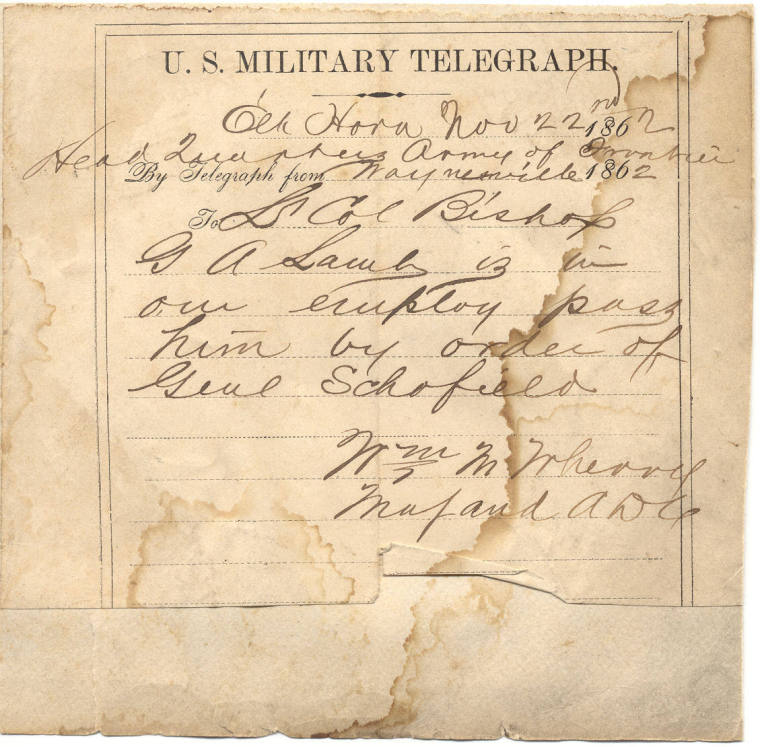 U. S. MILITARY TELEGRAPH.
Elk Horn Nov 22nd 1862
Head Quarters Army of Frontier
By Telegraph from Waynesville 1862
To Lt Col Bishop
G A Lamb is in
our employ pass
him by order of
Genl Schofield
Wm M Wherry
Maj and A D C